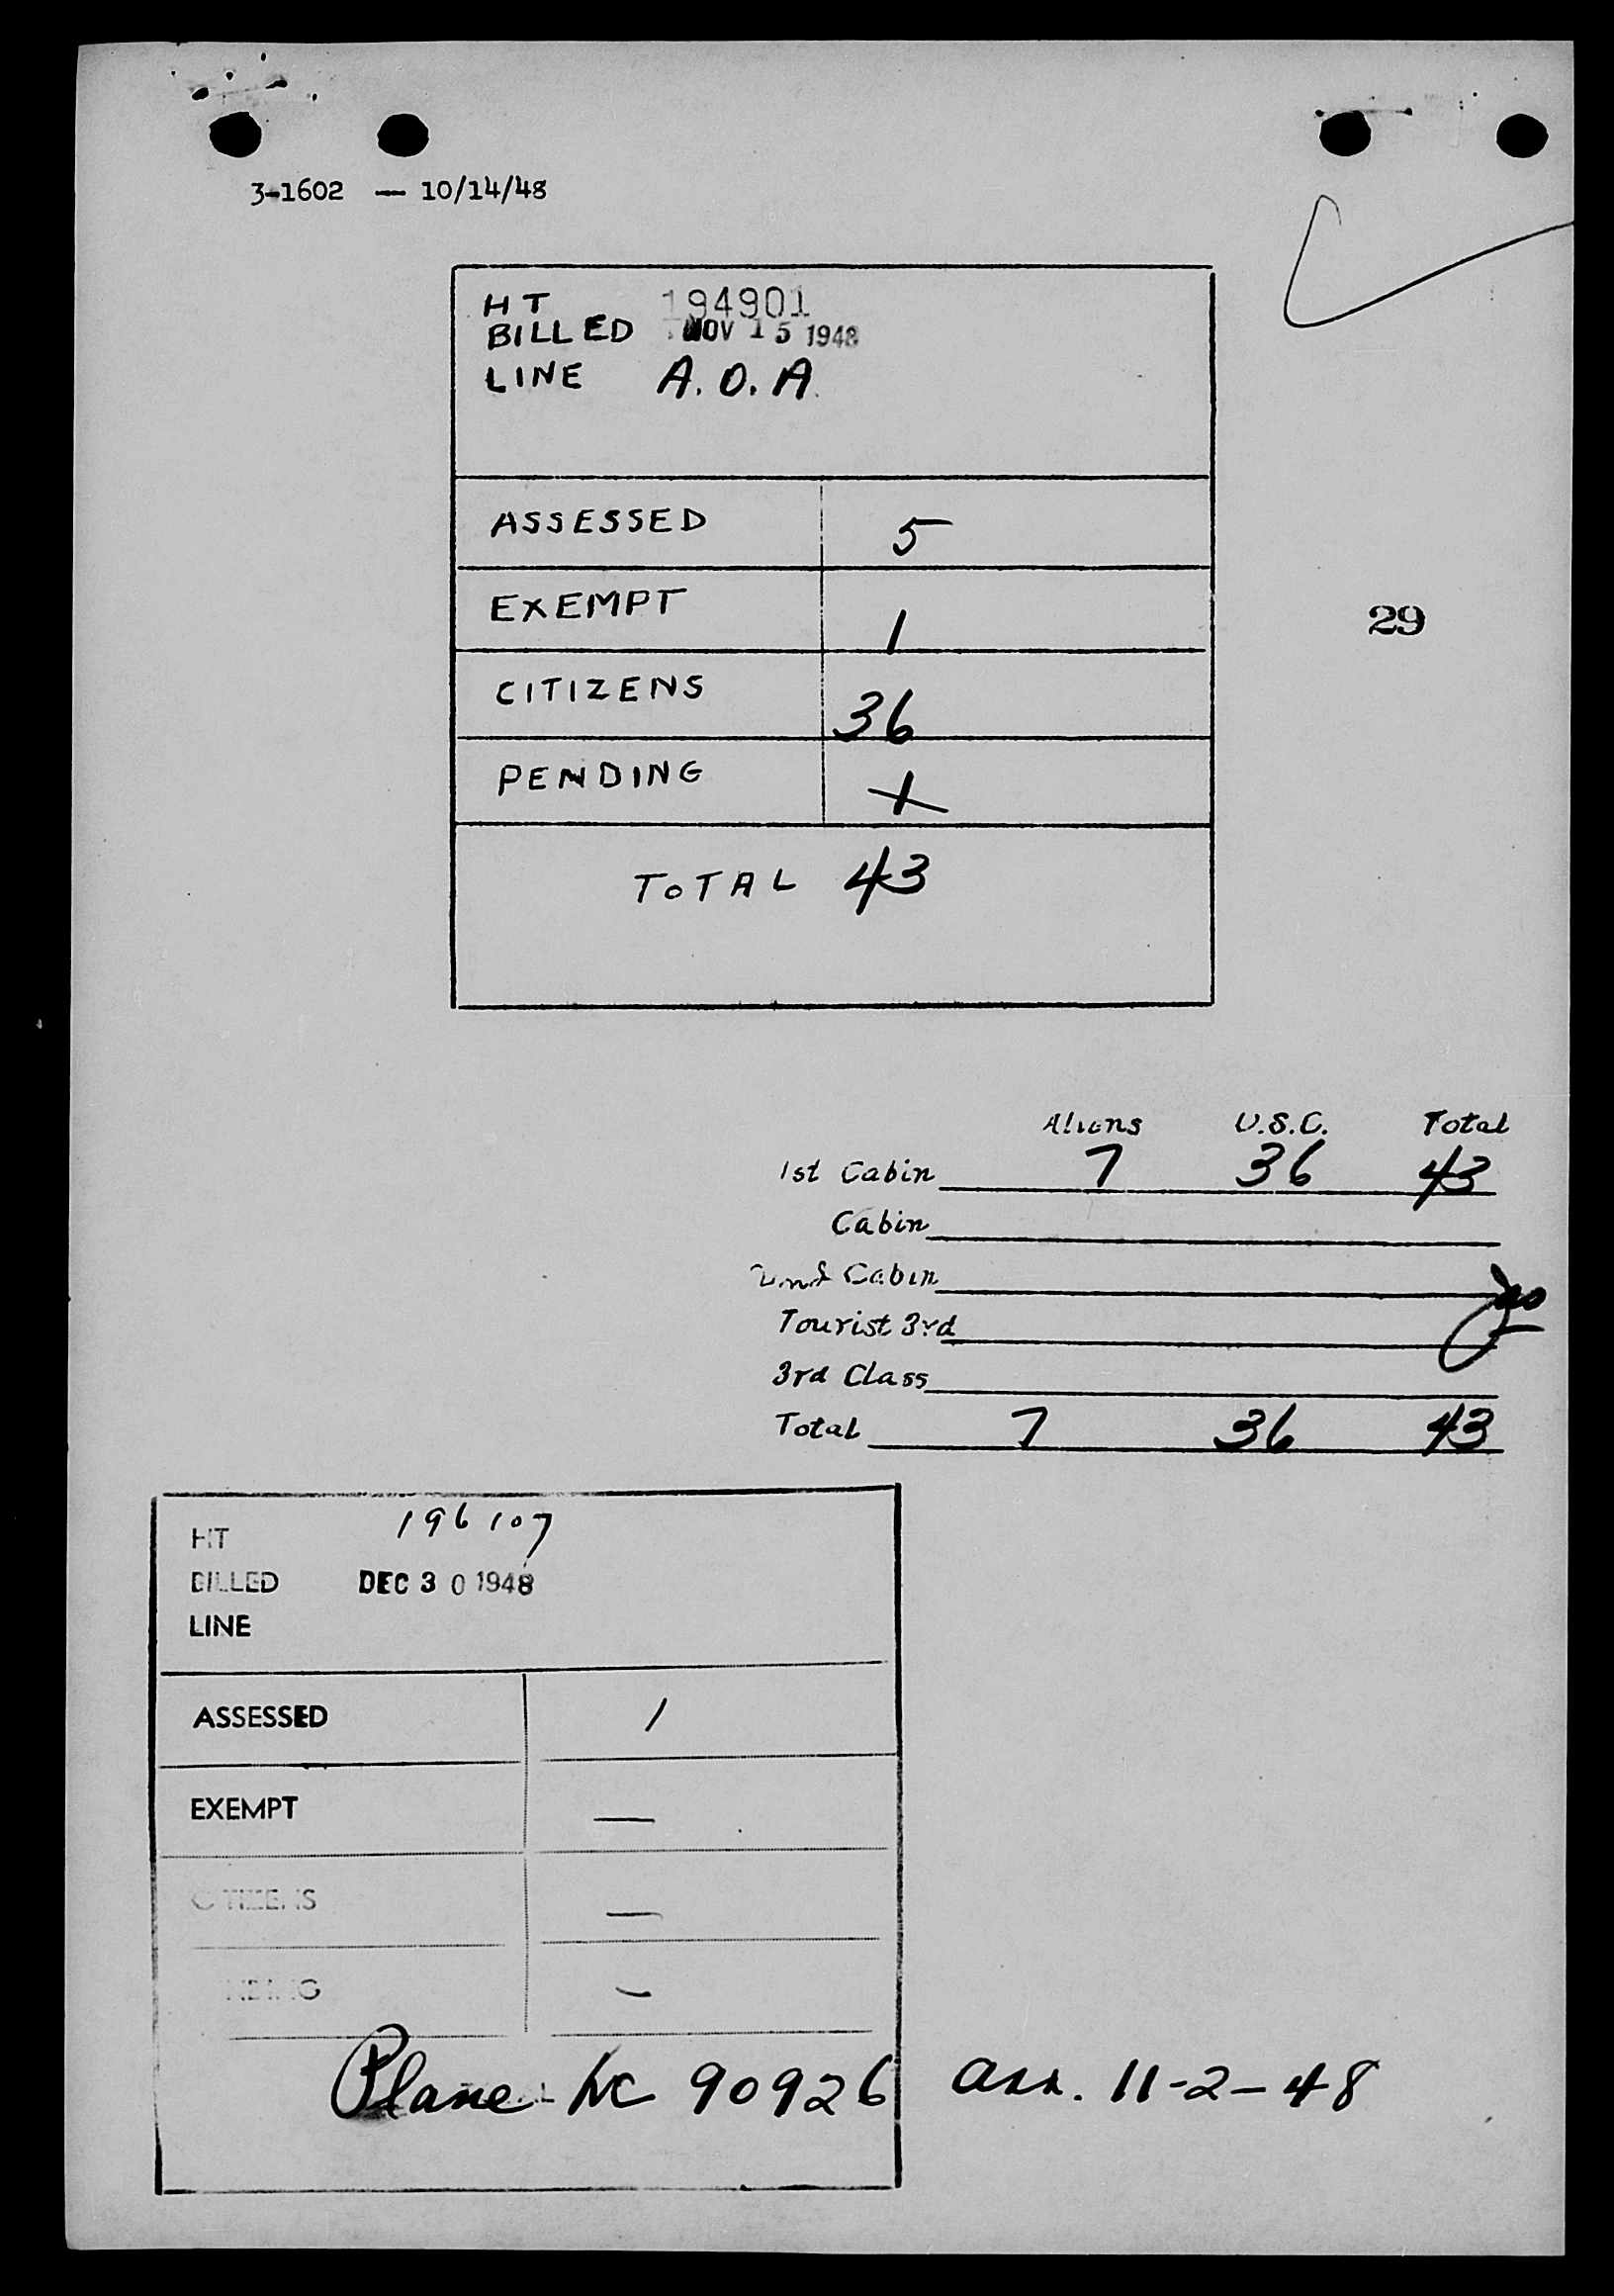 3-1602 — 10/14/48
HT 194901
BILLED NOV 15 1948
LINE A.O.A.
ASSESSED 5
EXEMPT 1
29
CITIZENS 36
PENDING 1
TOTAL 43
Aliens U.S.C. Total
1st Cabin 7 36 43
Cabin
2nd Cabin
Tourist 3rd
3rd Class
Total 7 36 43
HT 196107
BILLED DEC 30 1948
LINE
ASSESSED 1
EXEMPT —
CITIZENS —
PENDING —
Plane - NC 90926 arr. 11-2-48